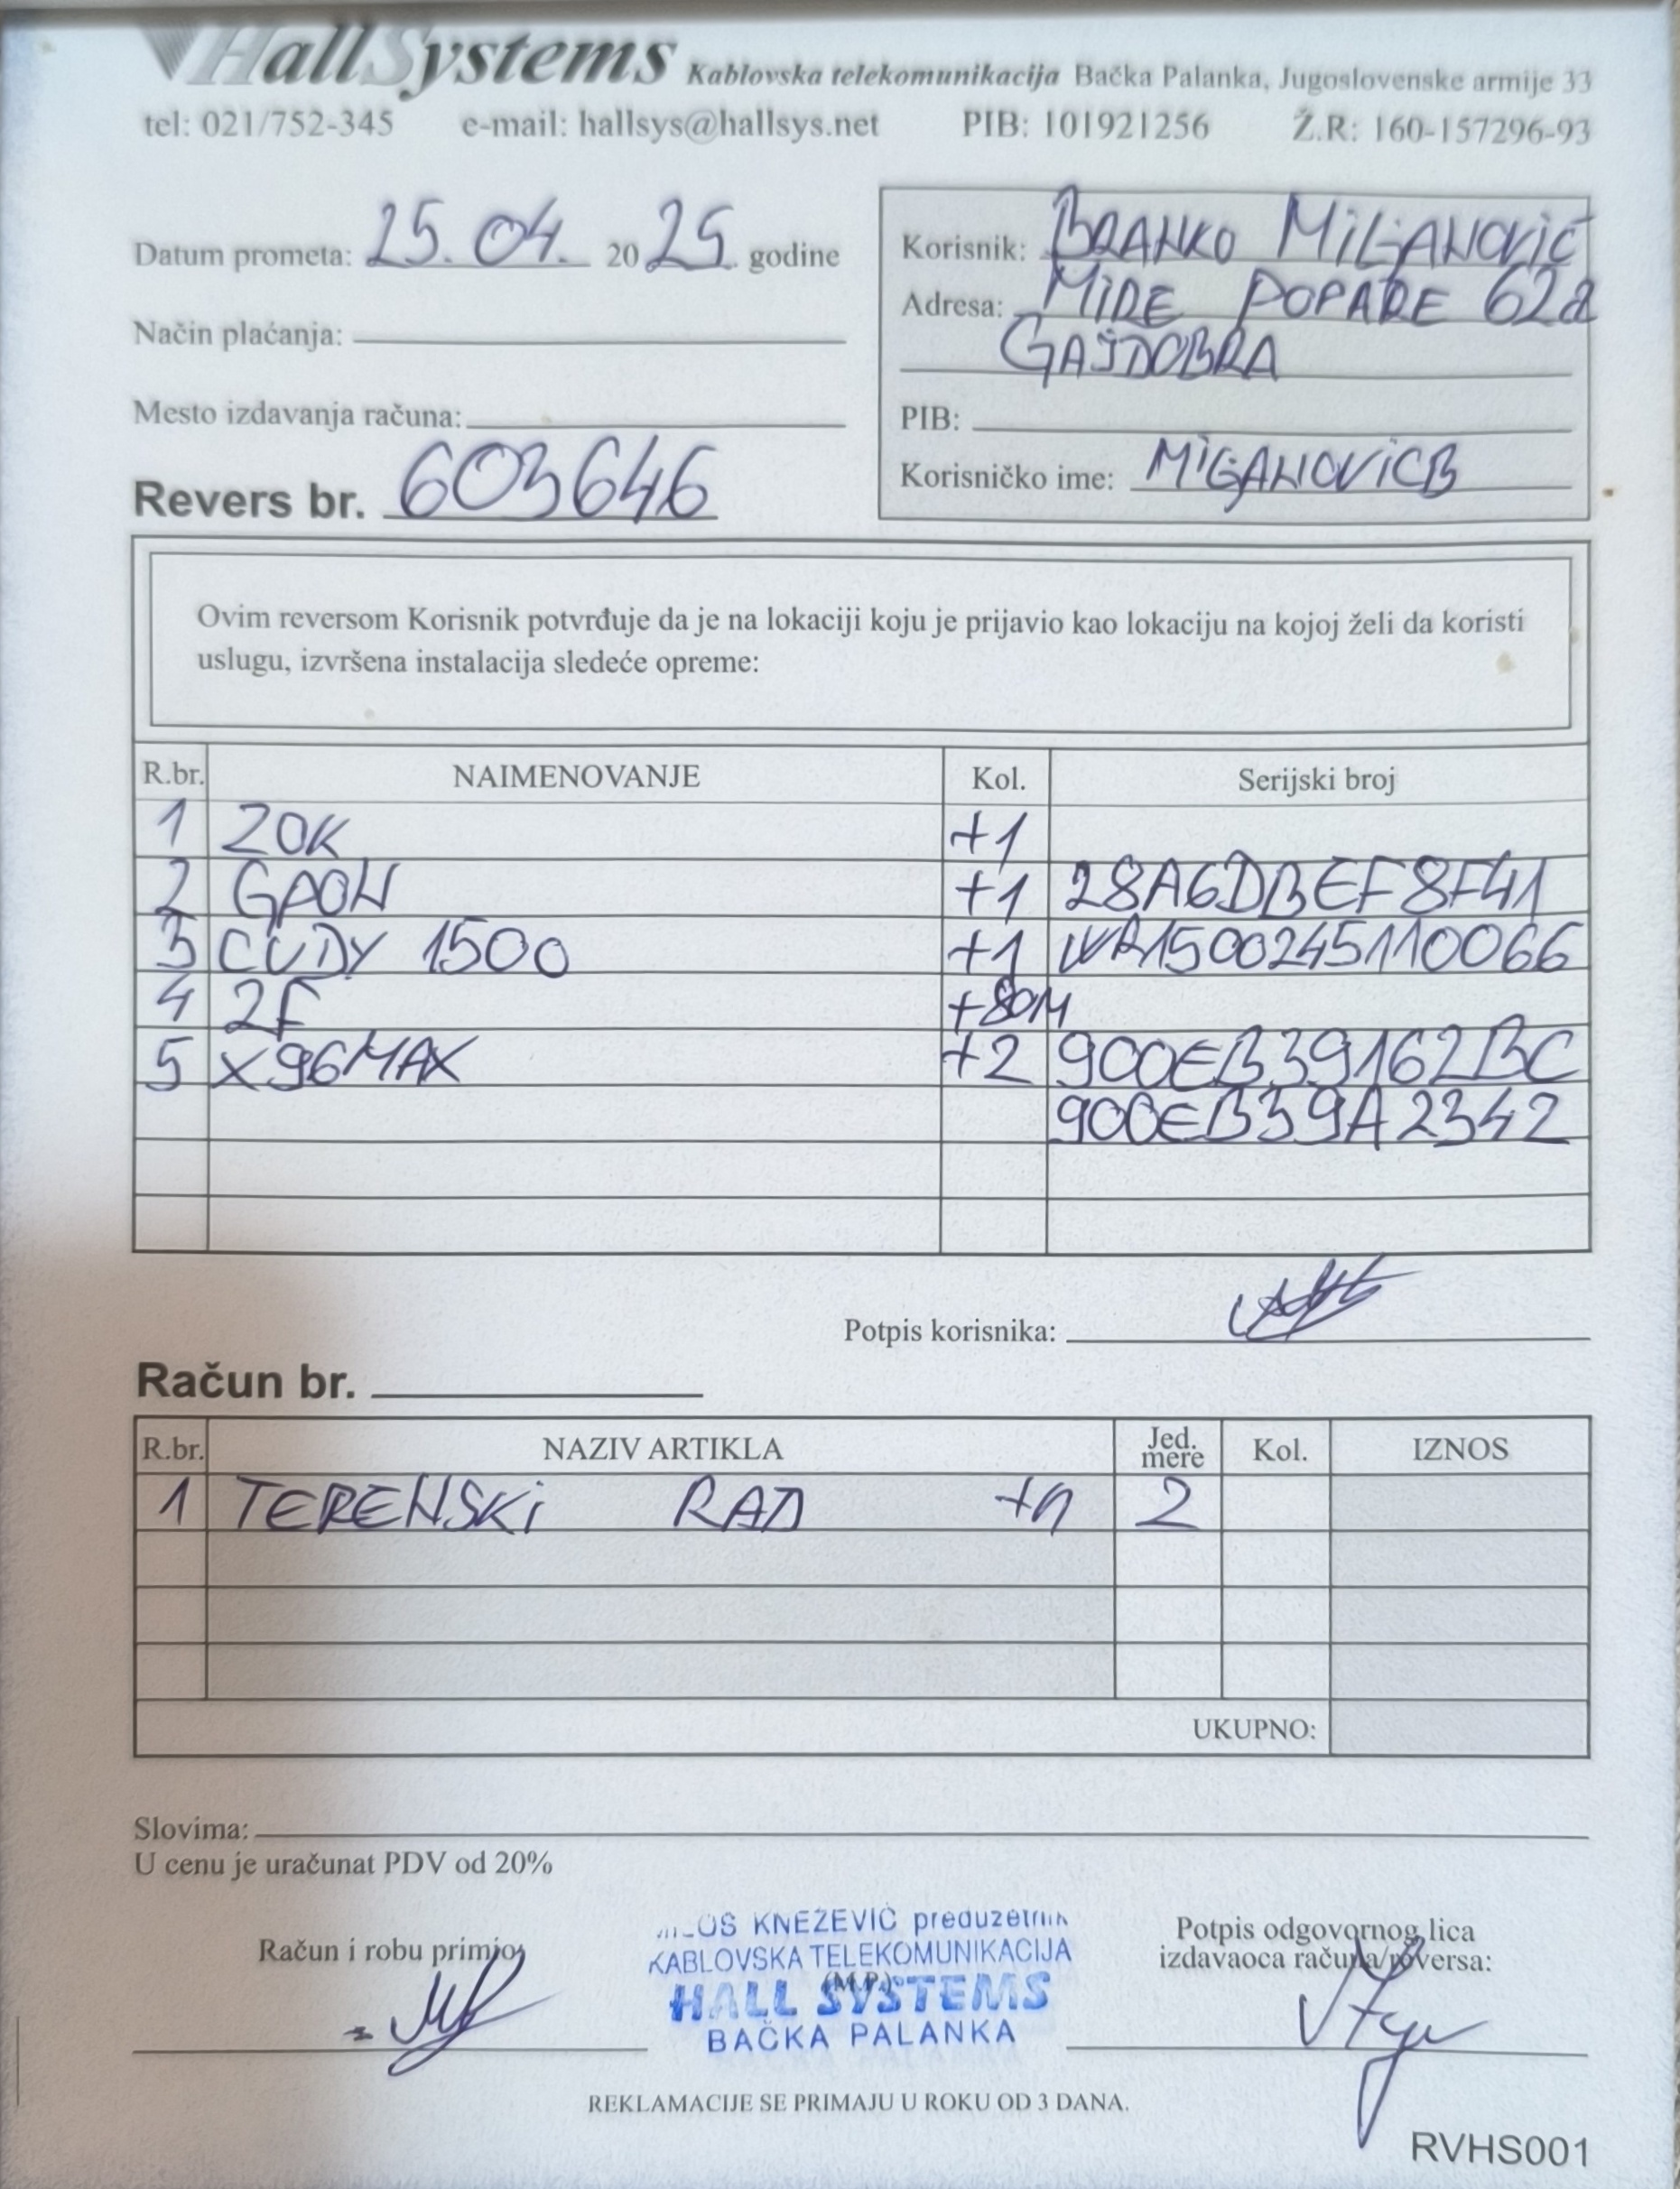 HallSystems Kablovska telekomunikacija Bačka Palanka, Jugoslovenske armije 33
tel: 021/752-345 e-mail: hallsys@hallsys.net PIB: 101921256 Ž.R: 160-157296-93
Datum prometa: 25.04. 2025 godine
Način plaćanja:
Mesto izdavanja računa:
Revers br. 603646
Korisnik: BRANKO MILJANOVIĆ
Adresa: MIRE POPARE 62a
GAJDOBRA
PIB:
Korisničko ime: MILJANOVICB
Ovim reversom Korisnik potvrđuje da je na lokaciji koju je prijavio kao lokaciju na kojoj želi da koristi
uslugu, izvršena instalacija sledeće opreme:
R.br. NAIMENOVANJE Kol. Serijski broj
1 ZOK +1
2 GPON +1 28A6DBEF8F41
3 CUDY 1500 +1 WR1500245110066
4 2F +80M
5 X96MAX +2 900EB39162BC
900EB39A2342
Potpis korisnika:
Račun br.
R.br. NAZIV ARTIKLA Jed. mere Kol. IZNOS
1 TERENSKI RAD 2
UKUPNO:
Slovima:
U cenu je uračunat PDV od 20%
Račun i robu primio:
KNEŽEVIĆ preduzetnik
KABLOVSKA TELEKOMUNIKACIJA
(M.P.)
HALL SYSTEMS
BAČKA PALANKA
Potpis odgovornog lica
izdavaoca računa/reversa:
REKLAMACIJE SE PRIMAJU U ROKU OD 3 DANA.
RVHS001